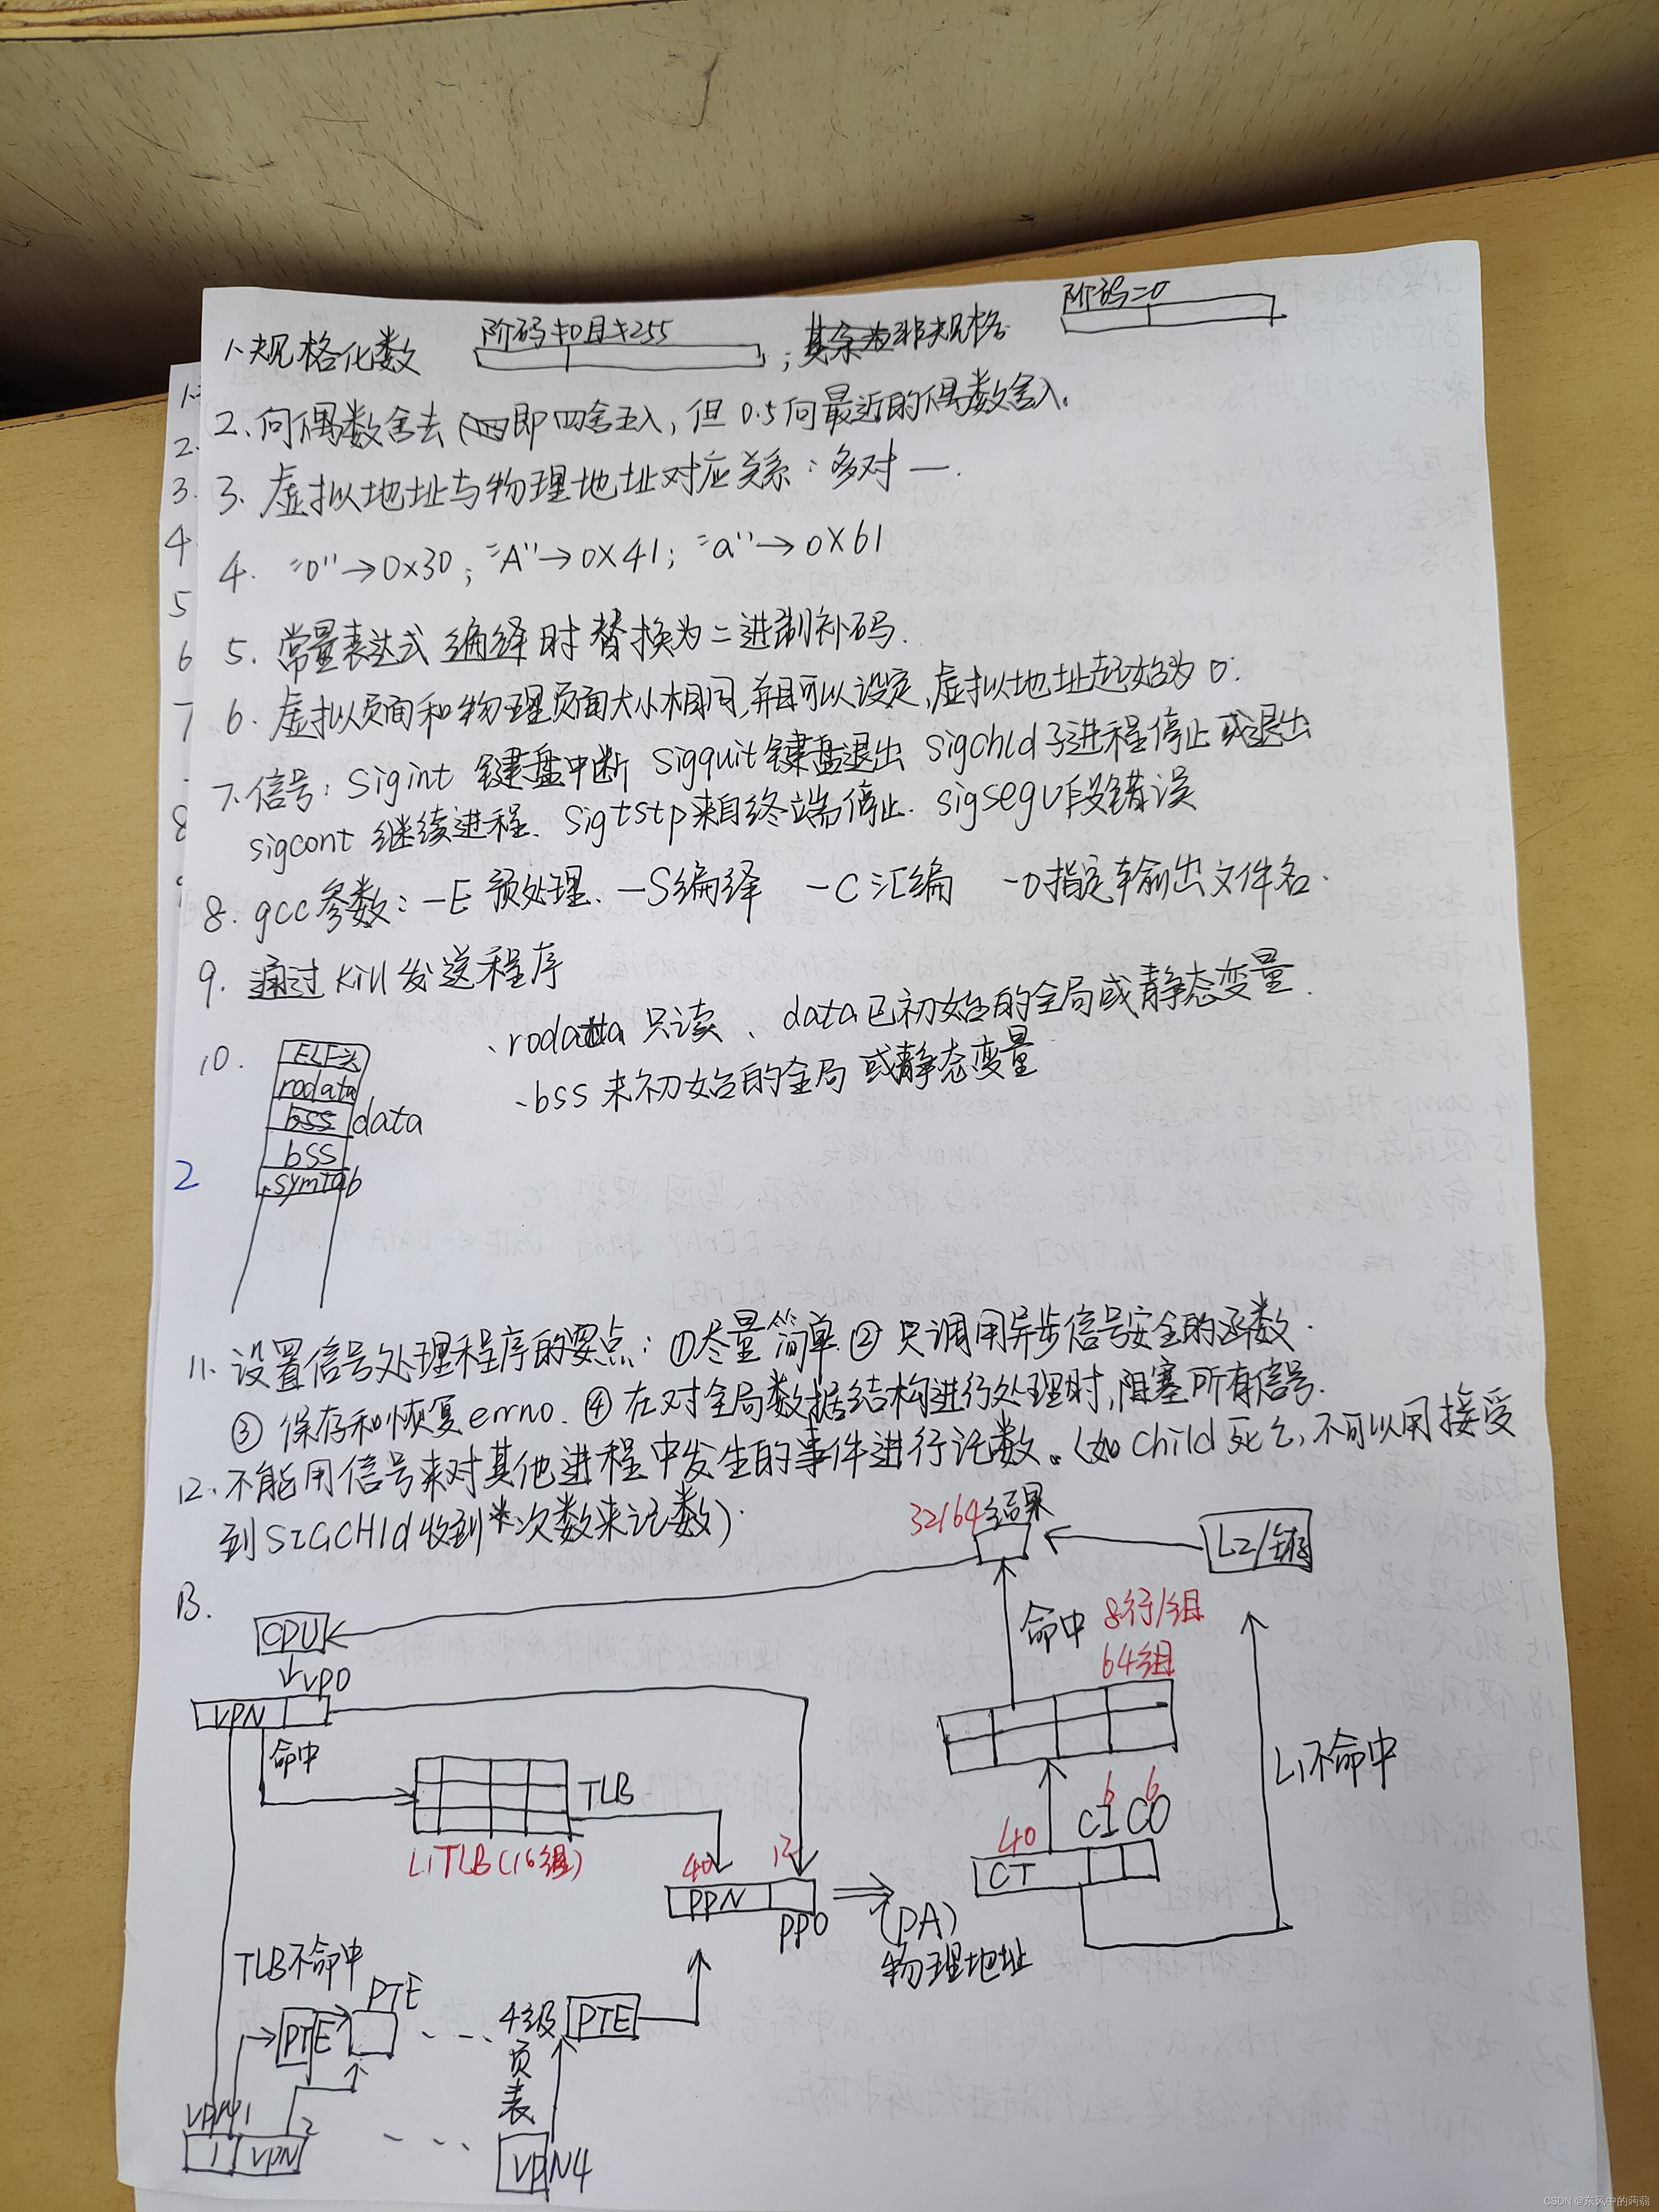 1、规格化数 阶码≠0且≠255 ; 非规格 阶码=0
2、向偶数舍去（即四舍五入，但0.5向最近的偶数舍入.
3、虚拟地址与物理地址对应关系：多对一.
4. "0"→0x30；"A"→0X41；"a"→0X61
5. 常量表达式 编绎时替换为二进制补码.
6. 虚拟页面和物理页面大小相同,并且可以设定,虚拟地址起始为0.
7.信号：Sigint 键盘中断 Sigquit键盘退出 Sigchld子进程停止或退出
sigcont 继续进程、Sigtstp来自终端停止. sigsegv段错误
8. gcc参数：-E 预处理、-S编绎 -C汇编 -o指定输出文件名.
9. 通过Kill发送程序
10. .rodata 只读、data已初始的全局或静态变量.
.bss 未初始的全局或静态变量
ELF头
rodata
data
bss
.symtab
2
11. 设置信号处理程序的要点：①尽量简单.②只调用异步信号安全的函数.
③ 保存和恢复errno. ④在对全局数据结构进行处理时,阻塞所有信号.
12.不能用信号来对其他进程中发生的事件进行记数。（如child死亡,不可以用接受
到SIGCHld收到次数来记数）.
13.
32/64 结果
L2/
CPU
命中 8行/组
64组
VPO
VPN
命中
TLB
L1TLB(16组)
L1不命中
6 6
40 CI CO
CT
40 12
PPN
PPO
(PA)
物理地址
TLB不命中
PTE
PTE
4级
页
表
PTE
VPN1 2
1 VPN
VPN4
1
2
3.
4
5
6
7
8
CSDN @东风中的蒟蒻